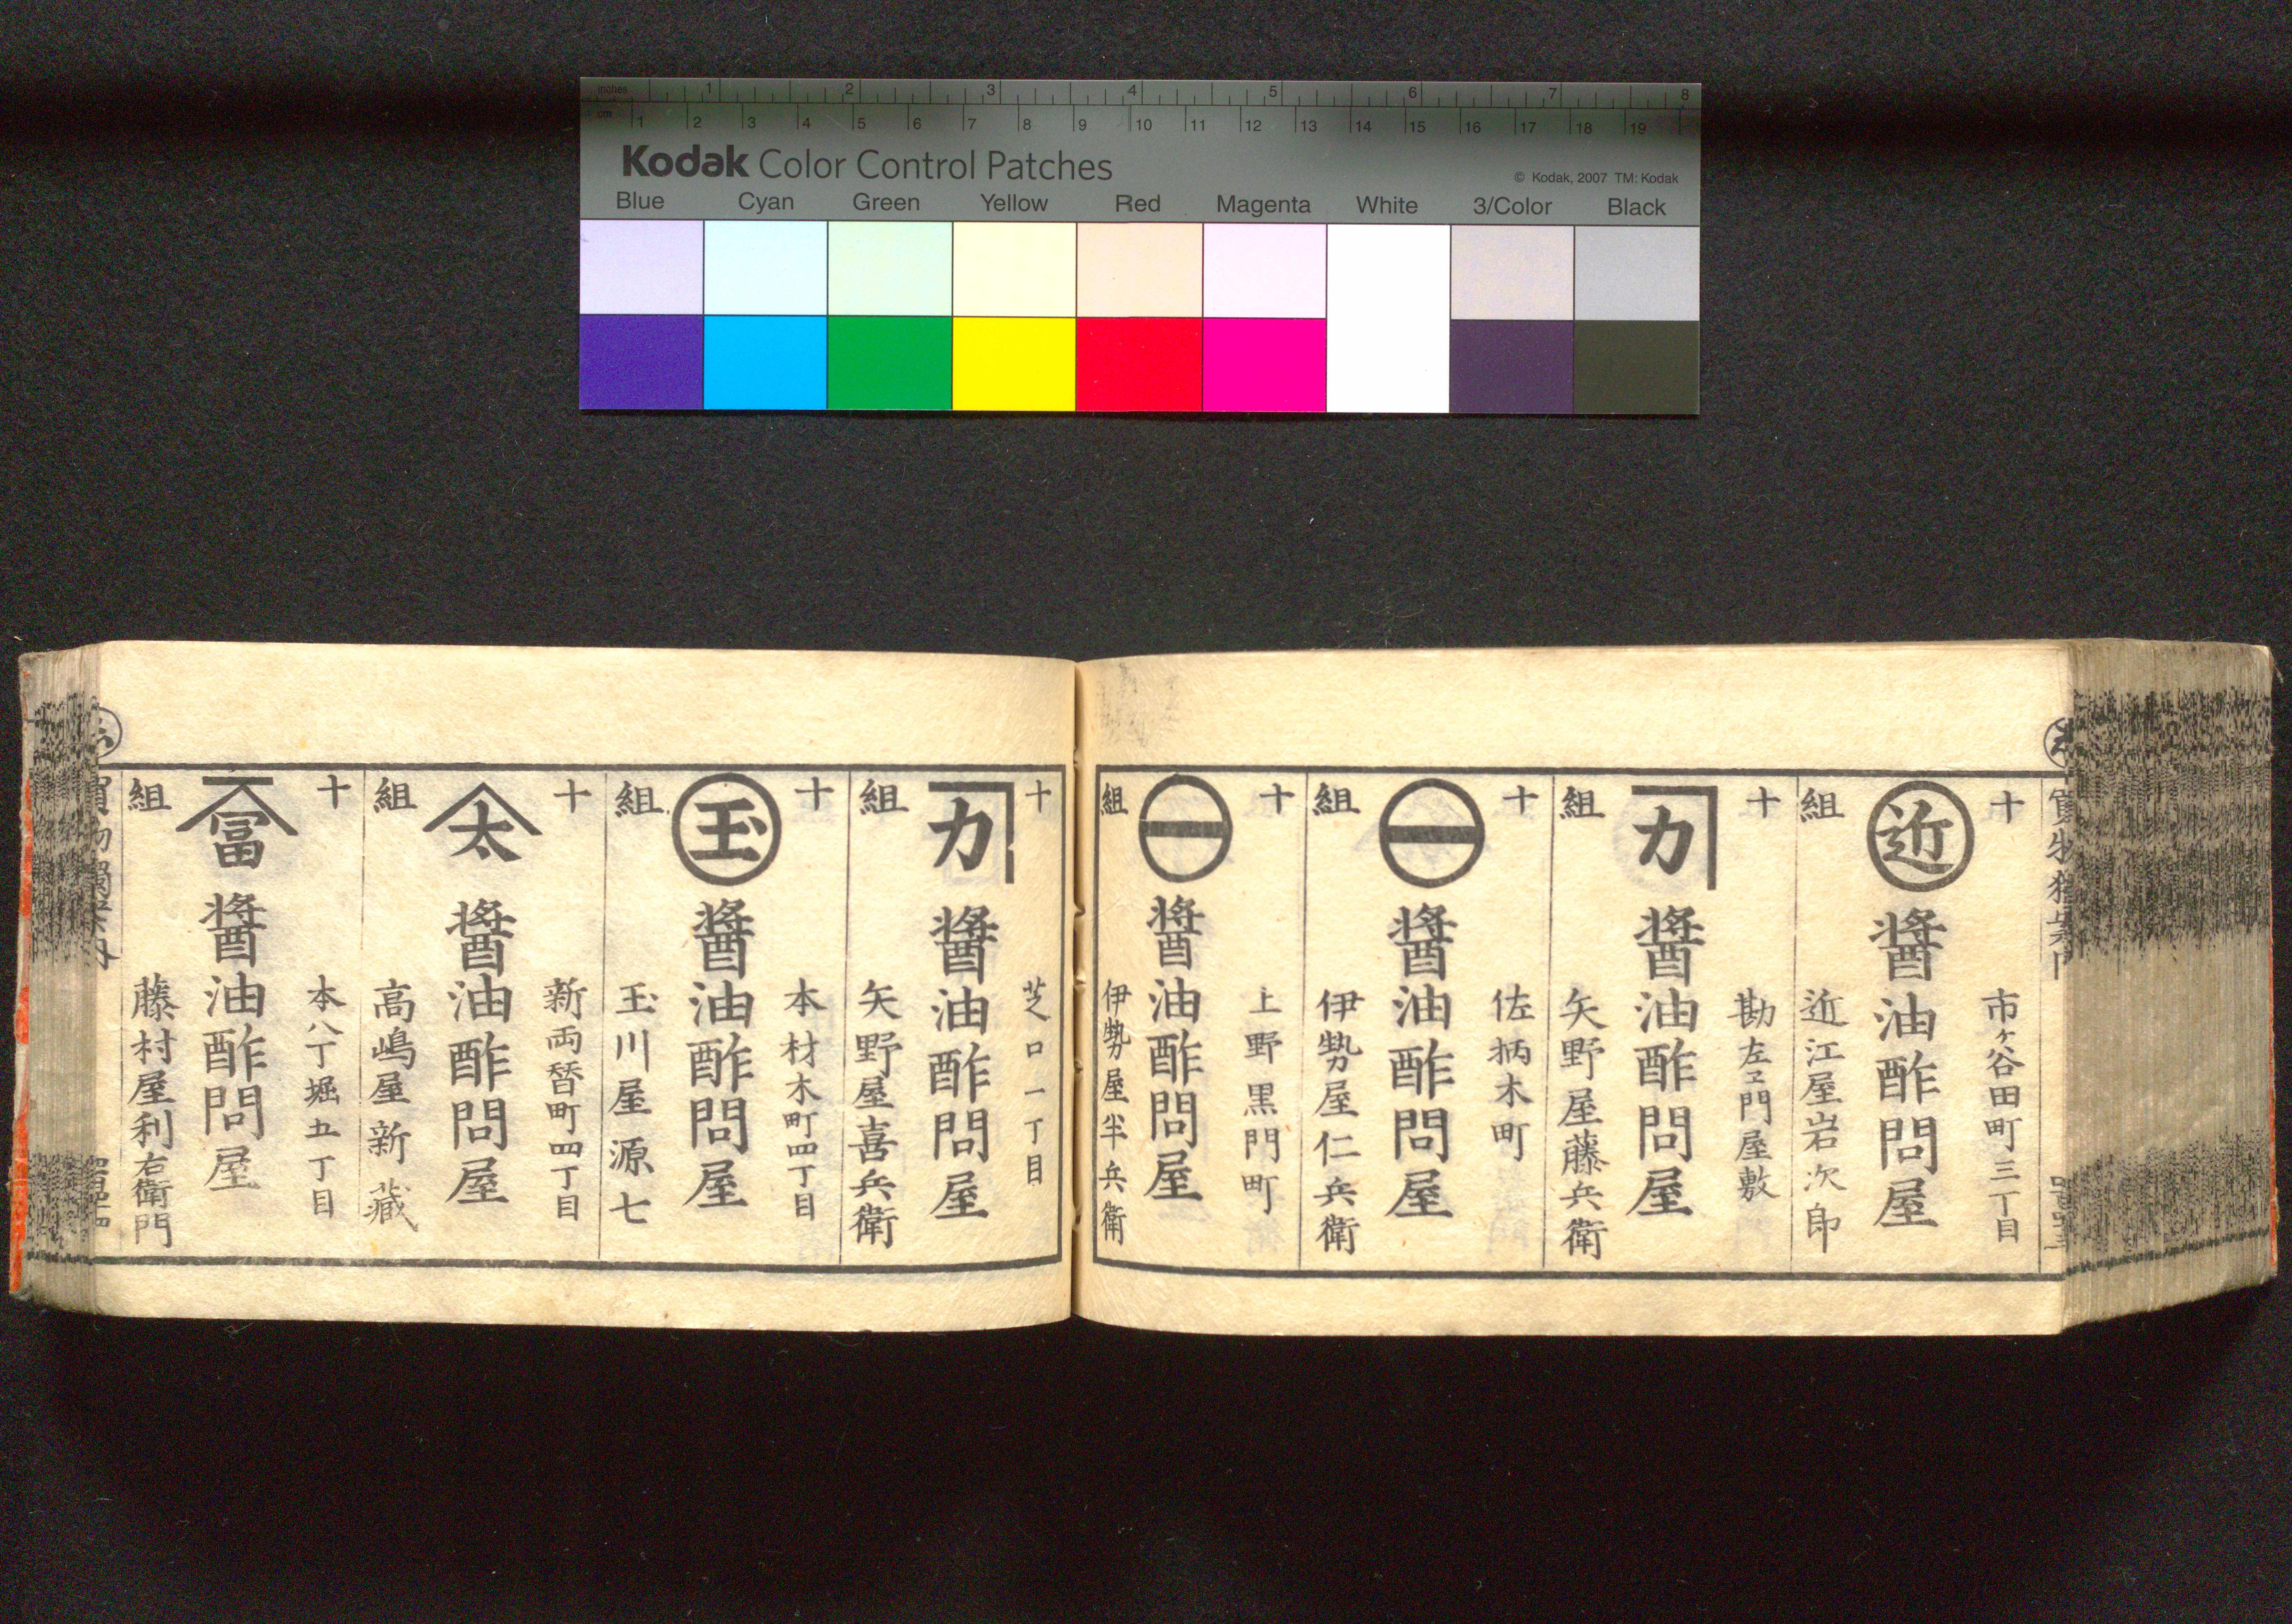 inches 1 2 3 4 5 6 7 8
cm 1 2 3 4 5 6 7 8 9 10 11 12 13 14 15 16 17 18 19
Kodak Color Control Patches
© Kodak, 2007 TM: Kodak
Blue Cyan Green Yellow Red Magenta White 3/Color Black
十組
近
市ヶ谷田町三丁目
醬油酢問屋
近江屋岩次郎
十組
カ
勘左ヱ門屋敷
醬油酢問屋
矢野屋藤兵衛
十組
一
佐柄木町
醬油酢問屋
伊勢屋仁兵衛
十組
一
上野黒門町
醬油酢問屋
伊勢屋半兵衛
十組
カ
芝口一丁目
醬油酢問屋
矢野屋喜兵衛
十組
玉
本材木町四丁目
醬油酢問屋
玉川屋源七
十組
太
新両替町四丁目
醬油酢問屋
高嶋屋新藏
十組
冨
本八丁堀五丁目
醬油酢問屋
藤村屋利右衛門